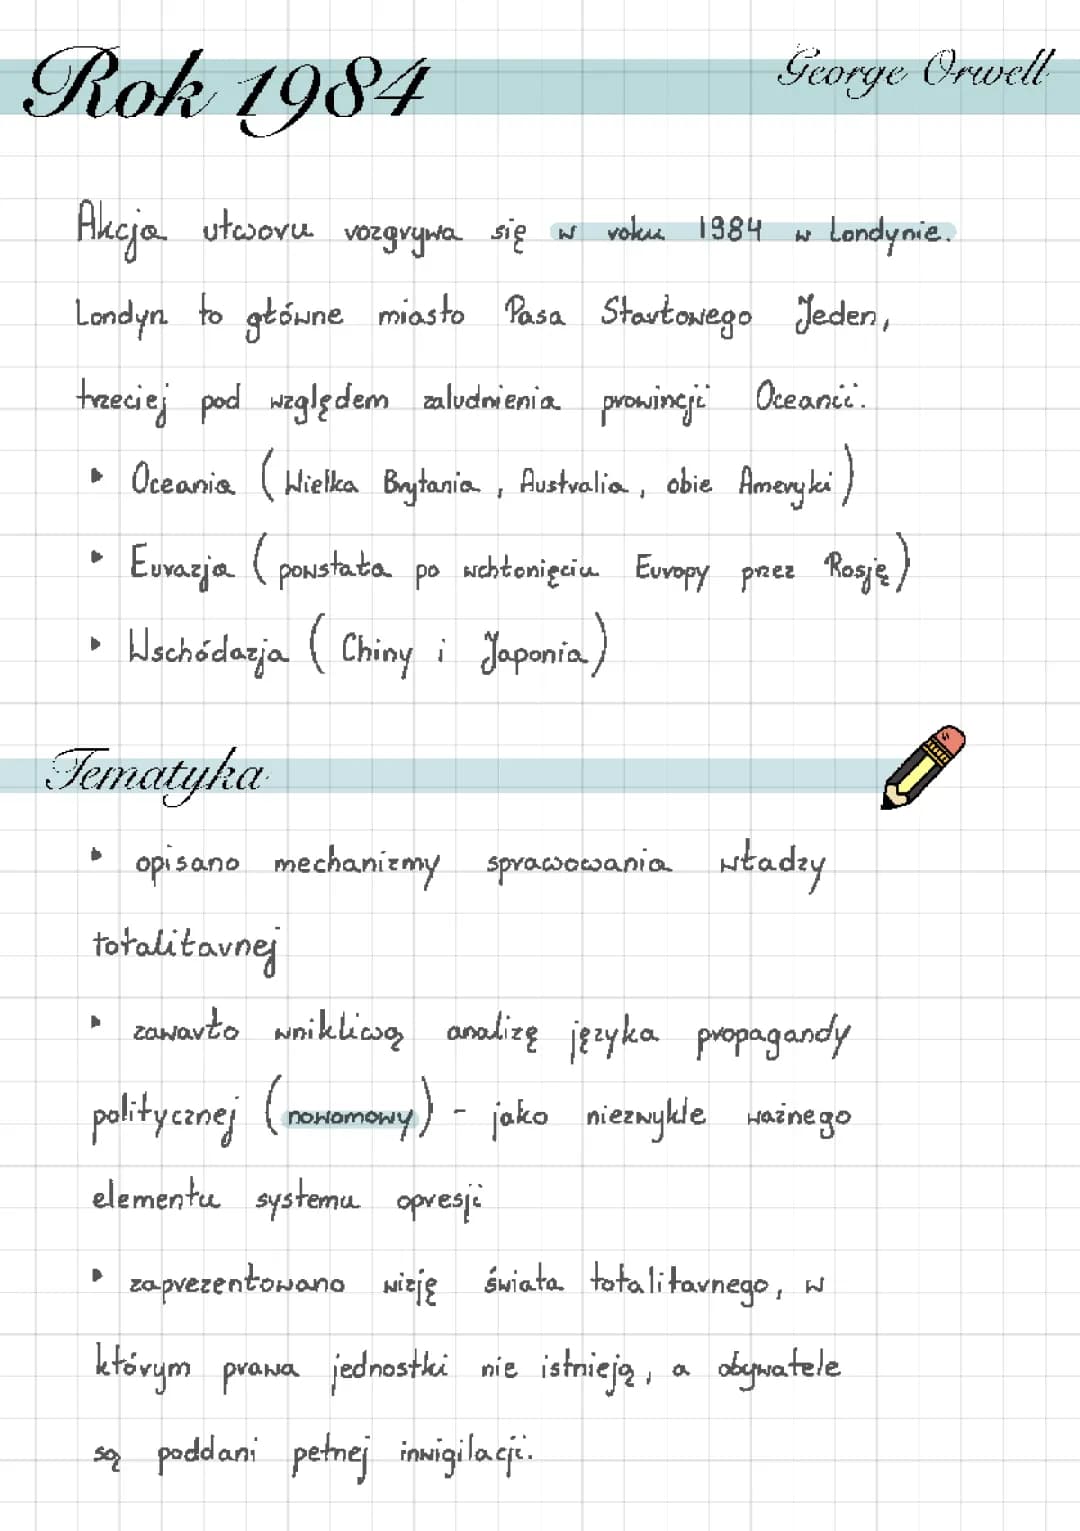 Rok 1984
George Orwell
Akcja utworu rozgrywa się w roku 1984 w Londynie.
Londyn to główne miasto Pasa Startowego Jeden,
trzeciej pod względem zaludnienia prowincji Oceanii.
▸ Oceania (Wielka Brytania, Australia, obie Ameryki)
▸ Eurazja (powstała po wchłonięciu Europy przez Rosję)
▸ Wschódazja (Chiny i Japonia)
Tematyka
▸ opisano mechanizmy sprawowania władzy
totalitarnej
▸ zawarto wnikliwą analizę języka propagandy
politycznej (nowomowy) - jako niezwykle ważnego
elementu systemu opresji
▸ zaprezentowano wizję świata totalitarnego, w
którym prawa jednostki nie istnieją, a obywatele
są poddani pełnej inwigilacji.